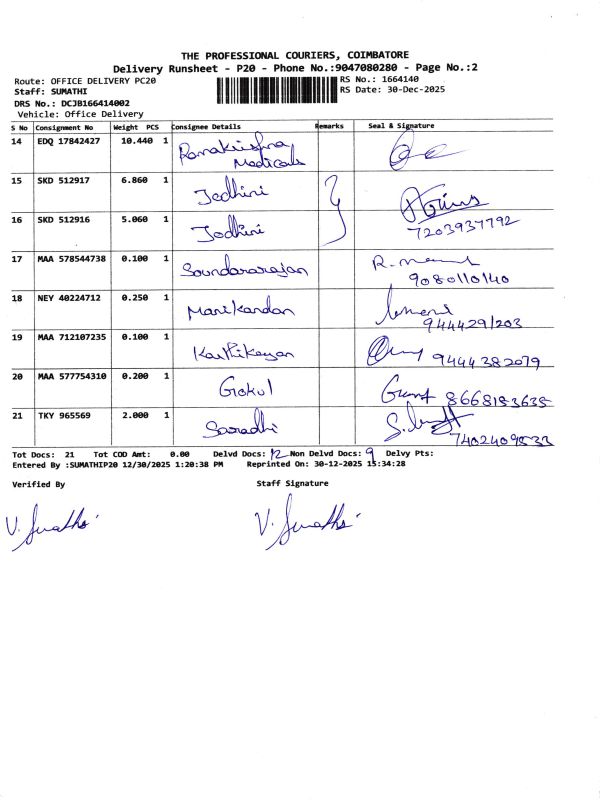 THE PROFESSIONAL COURIERS, COIMBATORE
Delivery Runsheet - P20 - Phone No.:9047080280 - Page No.:2
Route: OFFICE DELIVERY PC20 RS No.: 1664140
Staff: SUMATHI RS Date: 30-Dec-2025
DRS No.: DCJB166414002
Vehicle: Office Delivery
S No Consignment No Weight PCS Consignee Details Remarks Seal & Signature
14 EDQ 17842427 10.440 1 Ramakrishna Medicals
15 SKD 512917 6.860 1 Jodhini
16 SKD 512916 5.060 1 Jodhini 7203937792
17 MAA 578544738 0.100 1 Soundararajan 9080110140
18 NEY 40224712 0.250 1 Manikandan 9444291203
19 MAA 712107235 0.100 1 Karthikeyan 9444382079
20 MAA 577754310 0.200 1 Gokul 8668183635
21 TKY 965569 2.000 1 Saradhi 7402409533
Tot Docs: 21 Tot COD Amt: 0.00 Delvd Docs: 12 Non Delvd Docs: 9 Delvy Pts:
Entered By :SUMATHIP20 12/30/2025 1:20:38 PM Reprinted On: 30-12-2025 15:34:28
Verified By Staff Signature
V. Sumathi V. Sumathi